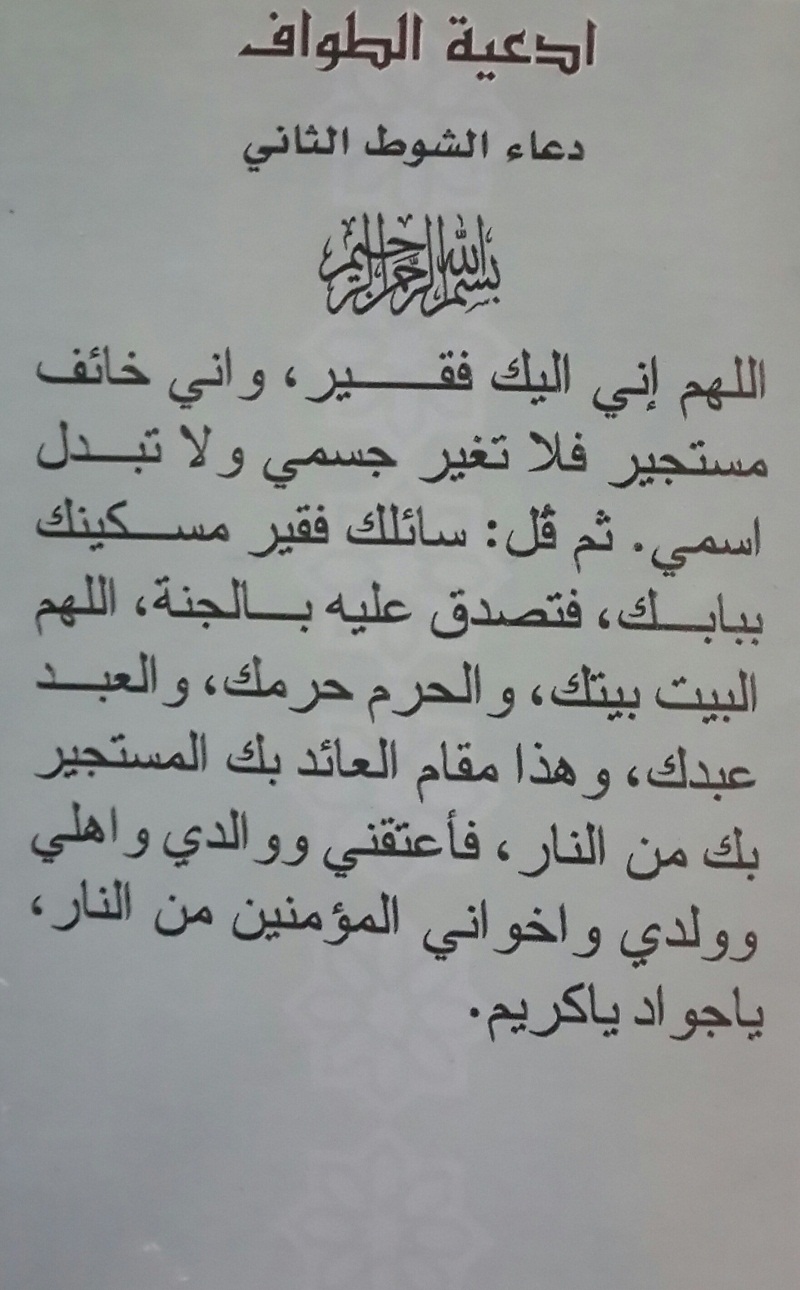 ادعية الطواف
دعاء الشوط الثاني
بسم الله الرحمن الرحيم
اللهم إني اليك فقير، واني خائف
مستجير فلا تغير جسمي ولا تبدل
اسمي. ثم قل: سائلك فقير مسكينك
ببابك، فتصدق عليه بالجنة، اللهم
البيت بيتك، والحرم حرمك، والعبد
عبدك، وهذا مقام العائد بك المستجير
بك من النار، فأعتقني ووالدي واهلي
وولدي واخواني المؤمنين من النار،
ياجواد ياكريم.